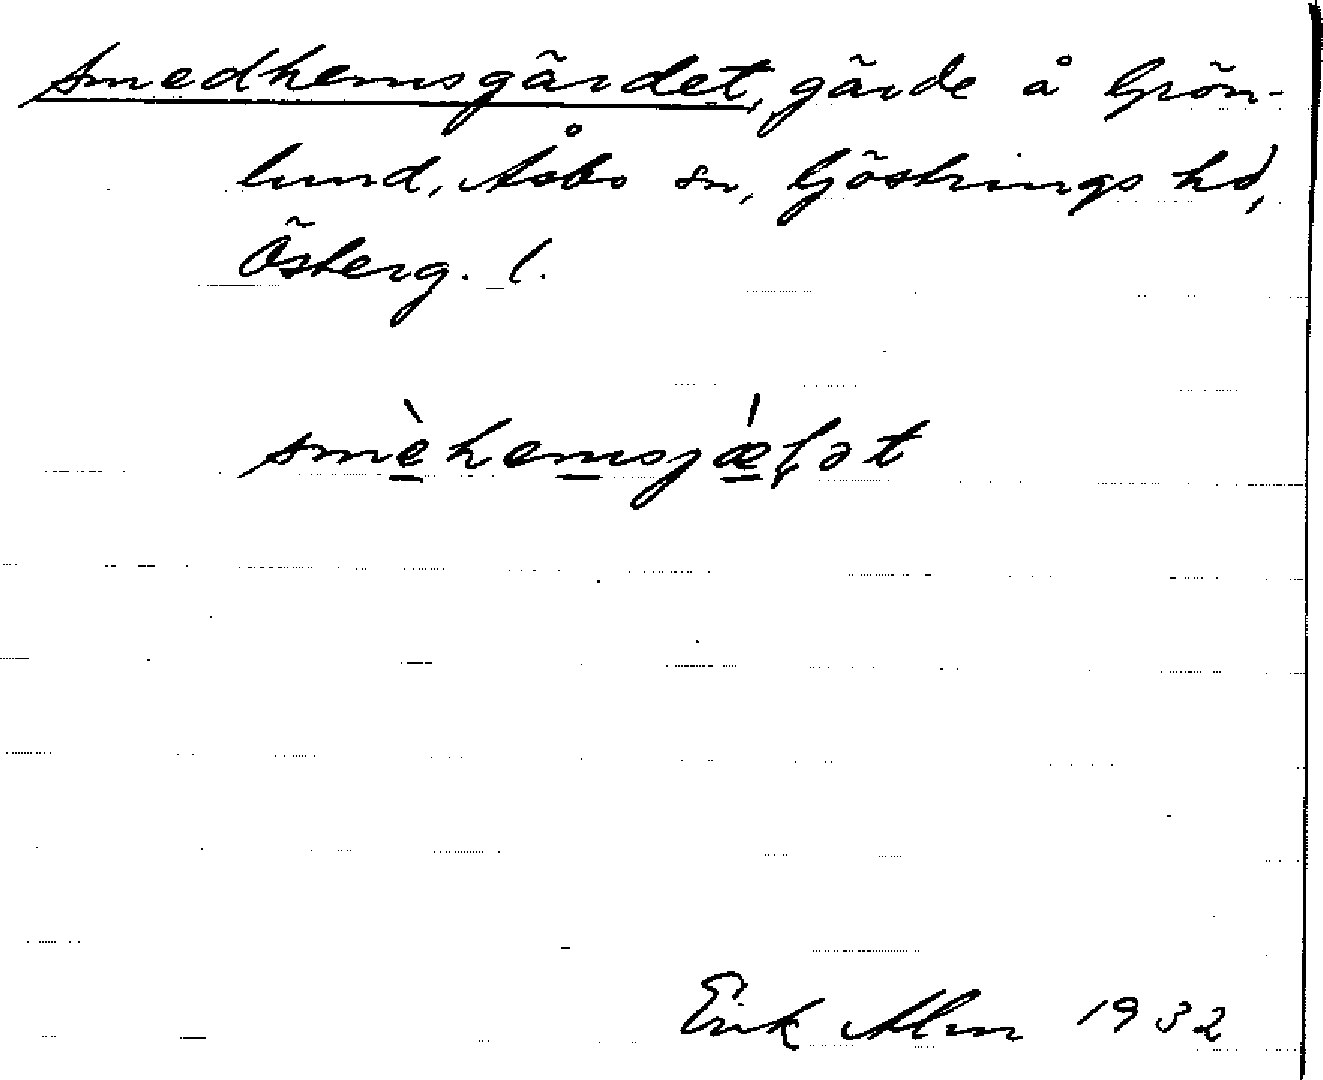 Smedhemsgärdet, gärde å Grön-
lund, Åsbo sn, Göstrings hd,
Österg. l.
smèhemsjǽɽət
Erik Alm 1932